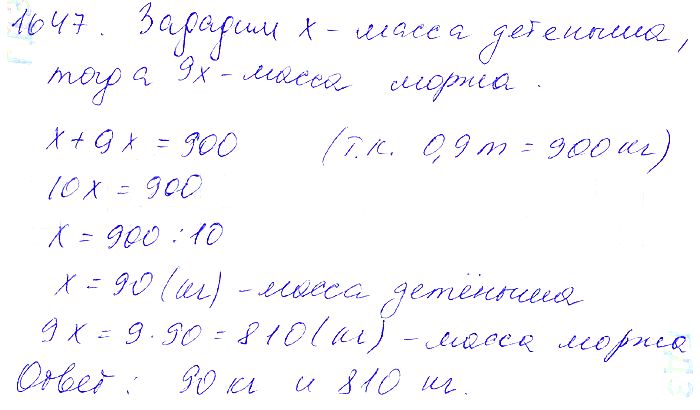 1647. Зададим x - масса детеныша,
тогда 9x - масса моржа.
x + 9x = 900 (т.к. 0,9 т = 900 кг)
10x = 900
x = 900 : 10
x = 90 (кг) - масса детёныша
9x = 9 · 90 = 810 (кг) - масса моржа
Ответ: 90 кг и 810 кг.